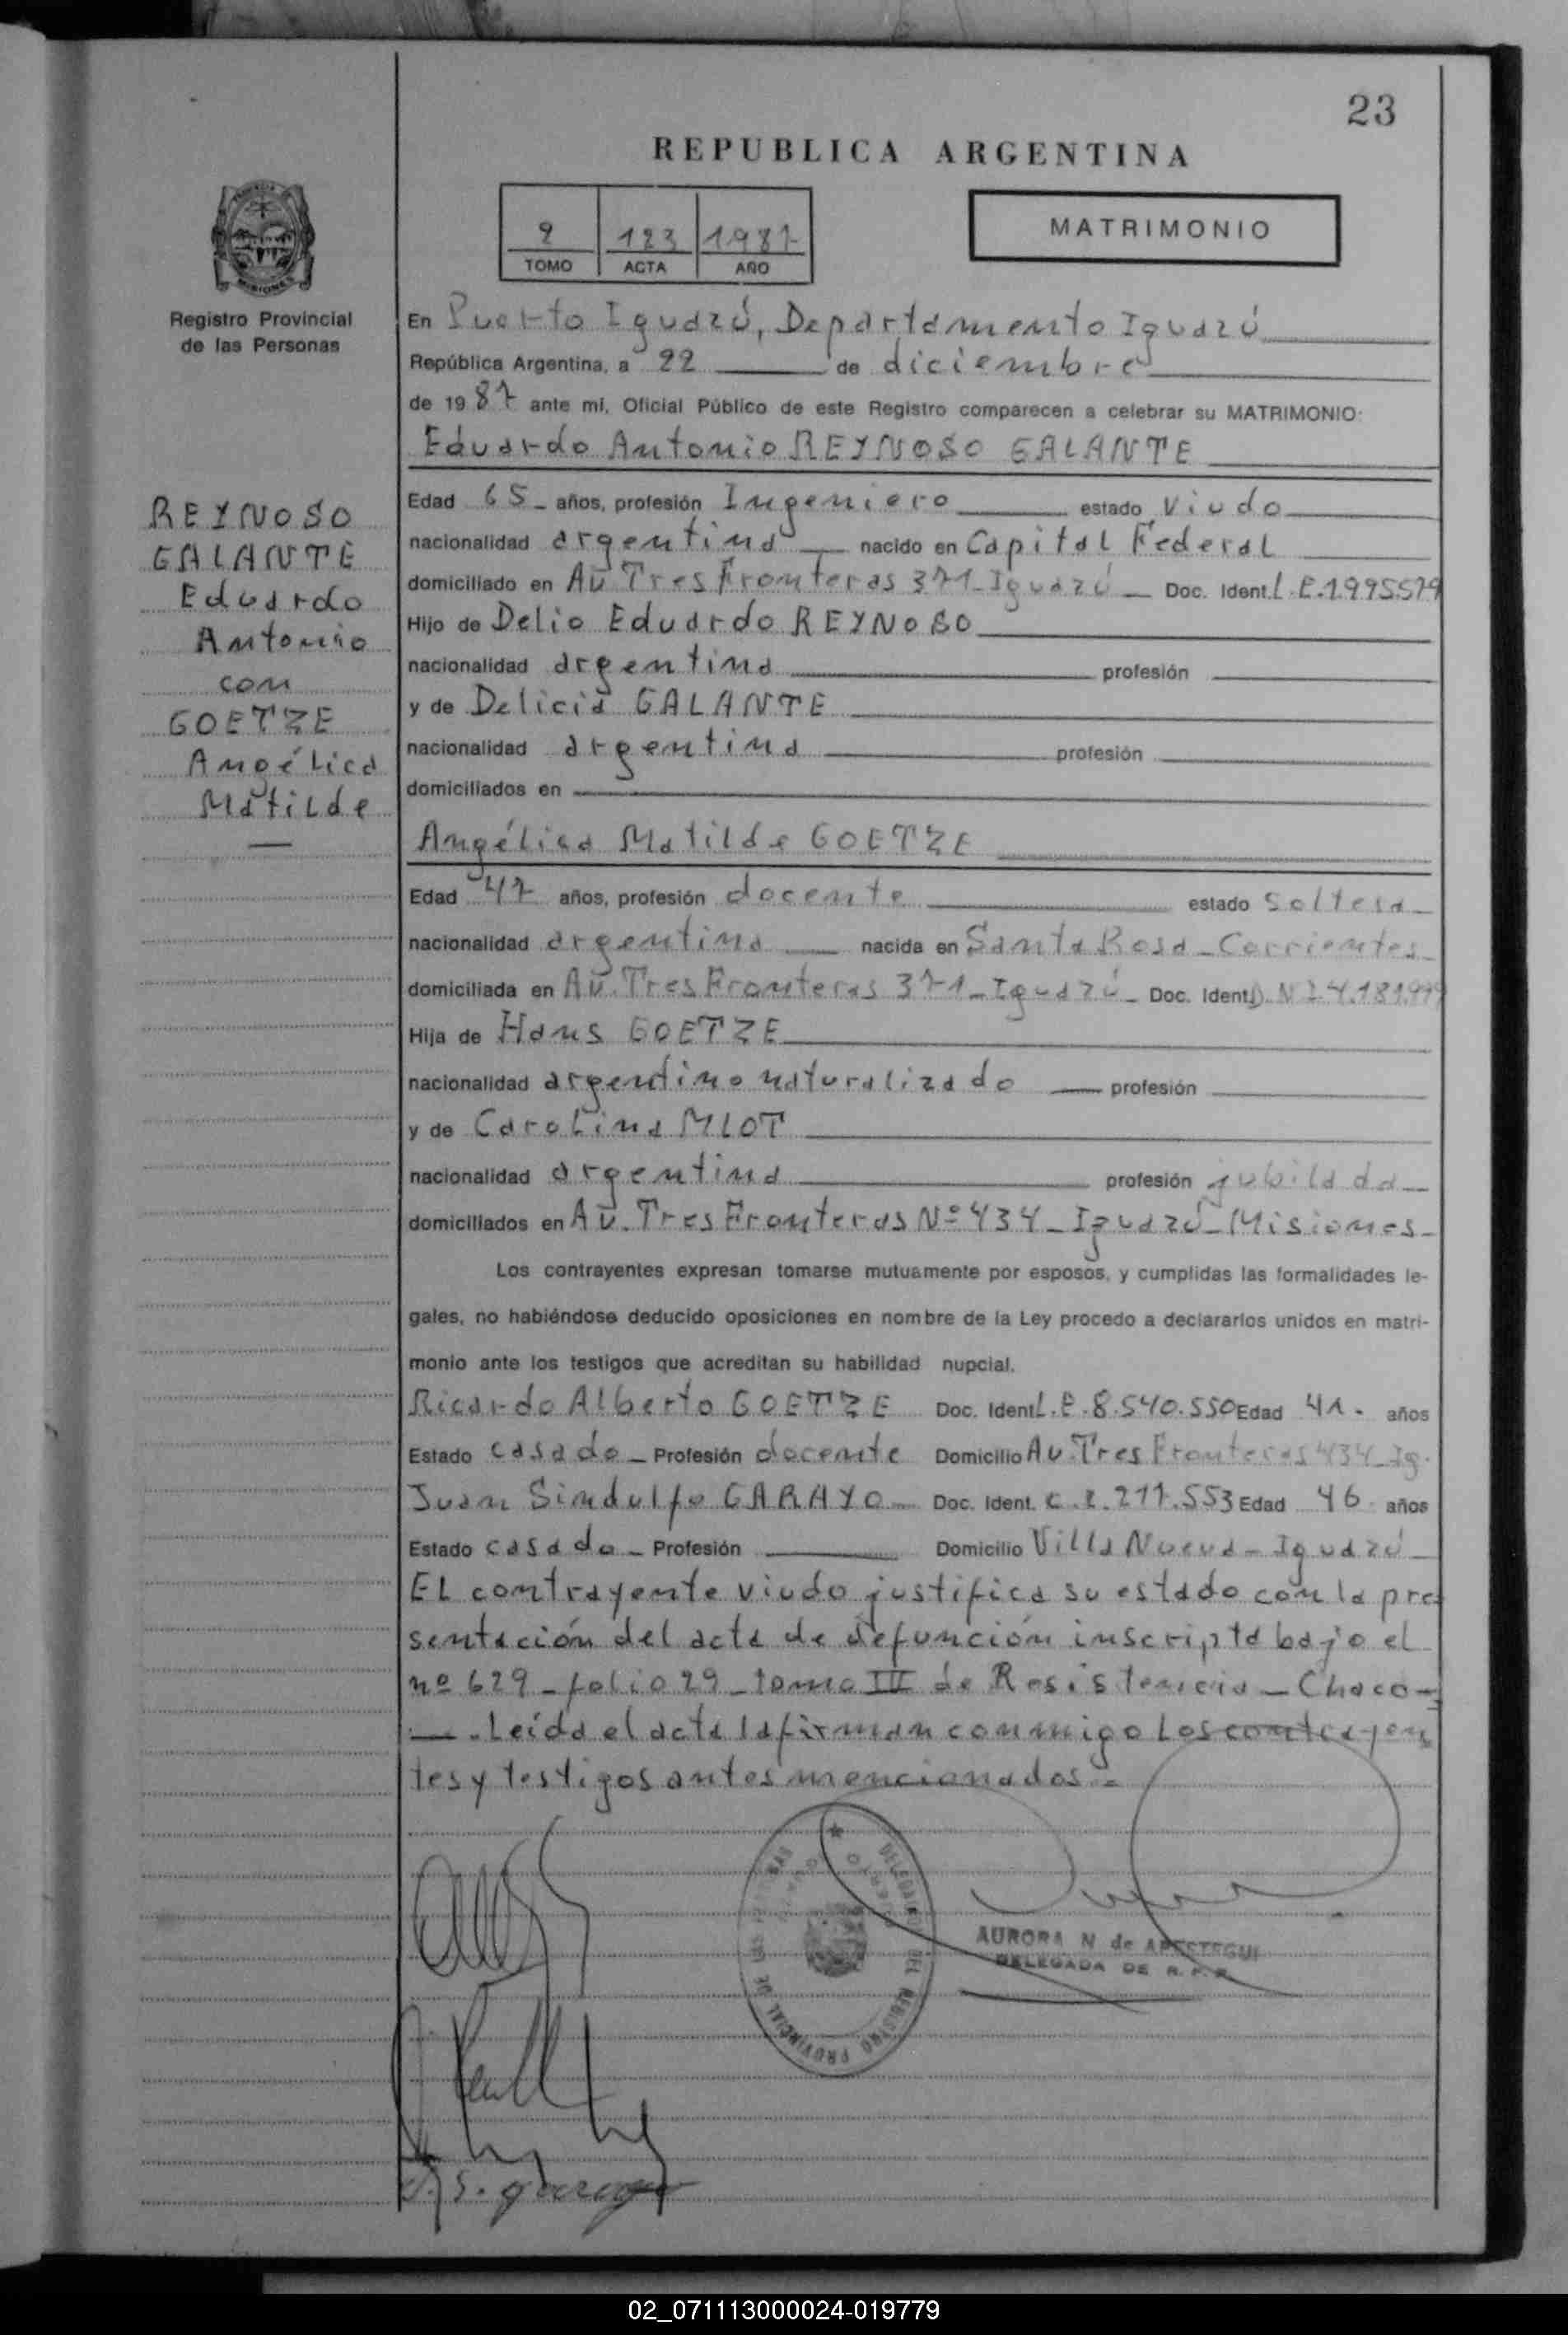 23
REPUBLICA ARGENTINA
2 123 1987
TOMO ACTA AÑO
MATRIMONIO
Registro Provincial
de las Personas
En Puerto Iguazú, Departamento Iguazú
República Argentina, a 22 de diciembre
de 1987 ante mí, Oficial Público de este Registro comparecen a celebrar su MATRIMONIO:
Eduardo Antonio REYNOSO GALANTE
REYNOSO
GALANTE
Eduardo
Antonio
con
GOETZE
Angélica
Matilde
Edad 65 años, profesión Ingeniero estado Viudo
nacionalidad argentina nacido en Capital Federal
domiciliado en Av Tres Fronteras 371-Iguazú Doc. Ident. L.E.1.995.579
Hijo de Delio Eduardo REYNOSO
nacionalidad argentina profesión
y de Delicia GALANTE
nacionalidad argentina profesión
domiciliados en
Angélica Matilde GOETZE
Edad 47 años, profesión docente estado Soltera
nacionalidad argentina nacida en Santa Rosa-Corrientes
domiciliada en Av. Tres Fronteras 371-Iguazú Doc. Ident.
Hija de Hans GOETZE
nacionalidad argentino naturalizado profesión
y de Carolina MLOT
nacionalidad argentina profesión jubilada
domiciliados en Av. Tres Fronteras Nº 434-Iguazú-Misiones-
Los contrayentes expresan tomarse mutuamente por esposos, y cumplidas las formalidades le-
gales, no habiéndose deducido oposiciones en nombre de la Ley procedo a declararlos unidos en matri-
monio ante los testigos que acreditan su habilidad nupcial.
Ricardo Alberto GOETZE Doc. Ident. L.E.8.540.550 Edad 41. años
Estado casado- Profesión docente Domicilio Av. Tres Fronteras 434-Ig.
Juan Sindulfo GARAYO Doc. Ident. C.I.217.553 Edad 46 años
Estado casado- Profesión Domicilio Villa Nueva-Iguazú
El contrayente viudo justifica su estado con la pre
sentación del acta de defunción inscripta bajo el
nº 629-folio 29-tomo III de Resistencia-Chaco-
-. Leída el acta la firman conmigo los contrayen
tes y testigos antes mencionados.-
DELEGADO DEL REGISTRO PROVINCIAL DE LAS PERSONAS
AURORA N de APESTEGUI
DELEGADA DE R.P.P.
02_071113000024-019779